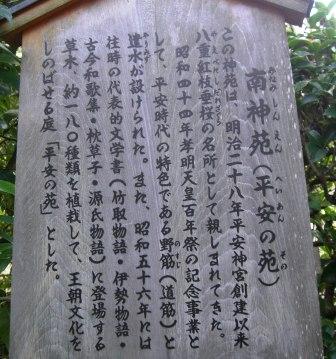 南神苑（平安の苑）
みなみしんえん　へいあん　その
この神苑は、明治二十八年平安神宮創建以来
八重紅枝垂桜の名所として親しまれてきた。
やえべにしだれざくら
昭和四十四年孝明天皇百年祭の記念事業と
して、平安時代の特色である野筋（道筋）と
のすじ
遣水が設けられた。また、昭和五十六年には
やりみず
往時の代表的文学書（竹取物語・伊勢物語・
古今和歌集・枕草子・源氏物語）に登場する
草木、約一八〇種類を植栽して、王朝文化を
しのばせる庭「平安の苑」とした。